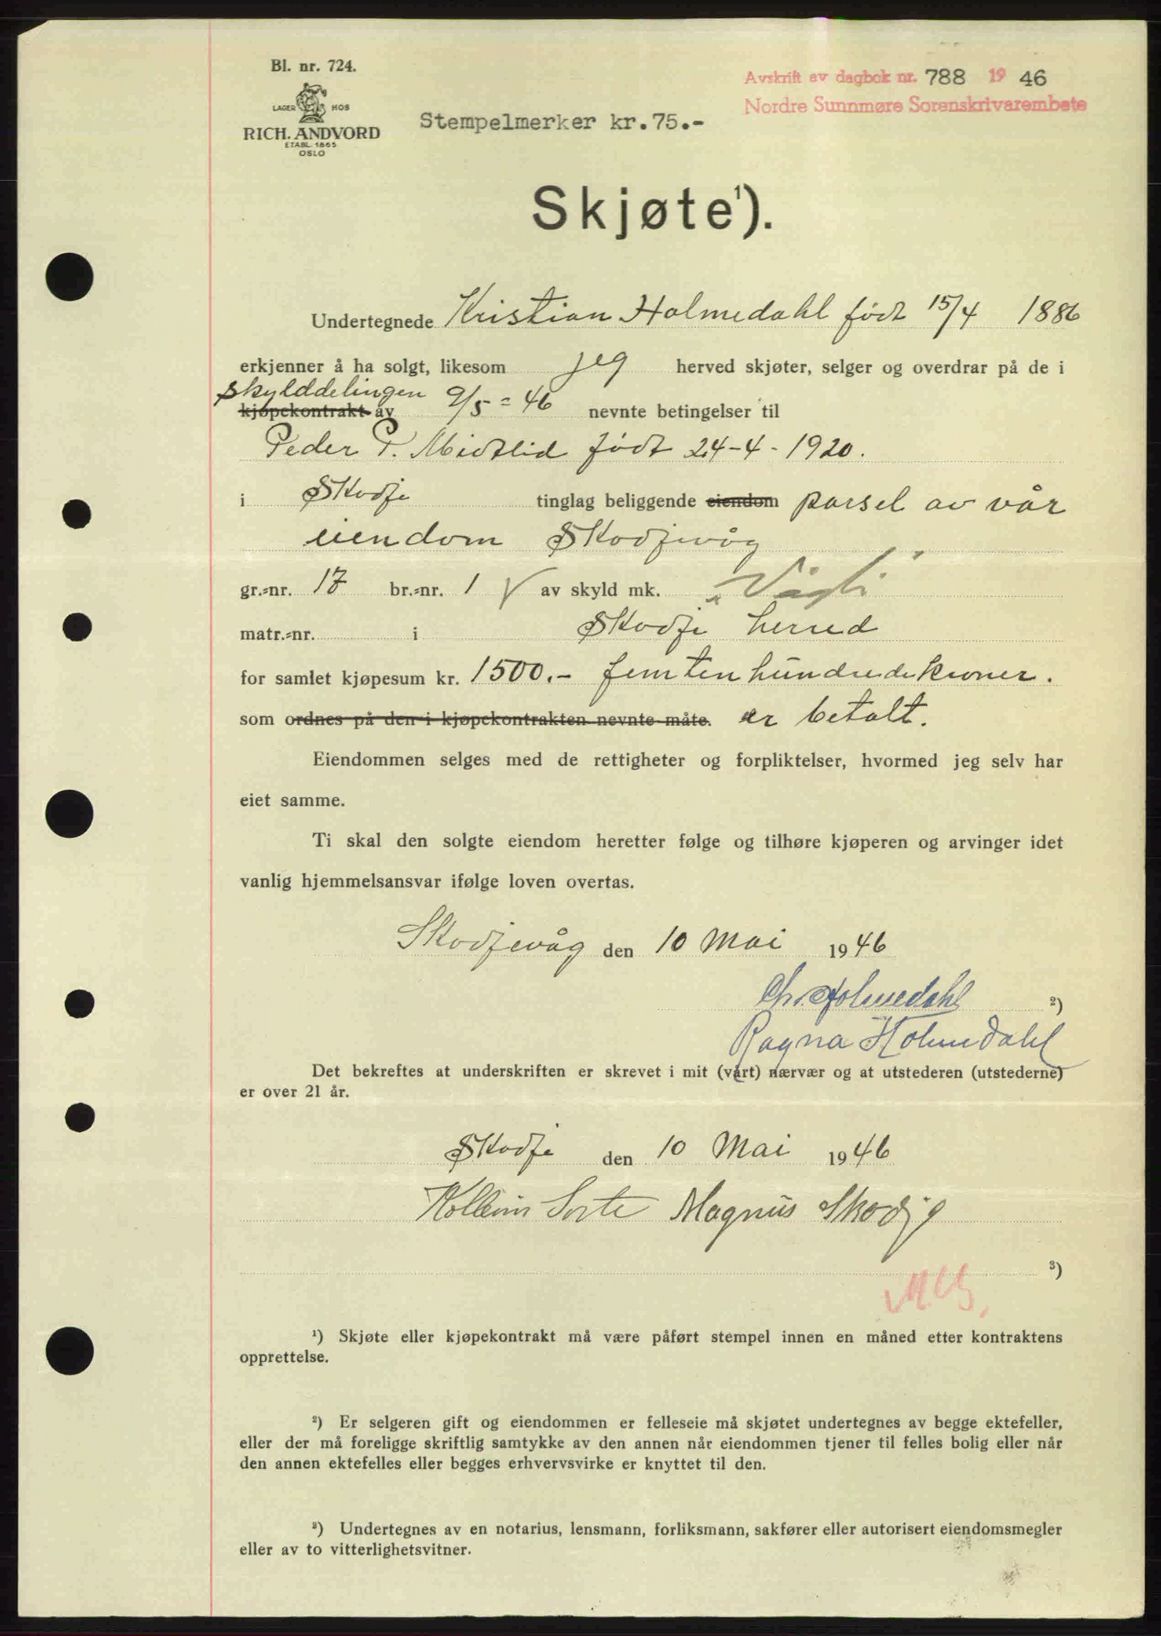 Bl. nr. 724.
LAGER HOS
RICH. ANDVORD
ETABL. 1865
OSLO
Stempelmerker kr.75.-
Avskrift av dagbok nr. 788 1946
Nordre Sunnmøre Sorenskrivarembete
Skjøte¹).
Undertegnede Kristian Holmedahl født 15/4 1886
erkjenner å ha solgt, likesom jeg herved skjøter, selger og overdrar på de i
skylddelingen
kjøpekontrakt av 9/5 = 46 nevnte betingelser til
Peder P. Midtlid født 24-4-1920.
i Skodje tinglag beliggende eiendom parsel av vår
eiendom Skodjevåg
gr.-nr. 17 br.-nr. 1 av skyld mk. "Vågli"
matr.-nr. i Skodje herred
for samlet kjøpesum kr. 1500.- femtenhundredekroner.
som ordnes på den i kjøpekontrakten nevnte måte. er betalt.
Eiendommen selges med de rettigheter og forpliktelser, hvormed jeg selv har
eiet samme.
Ti skal den solgte eiendom heretter følge og tilhøre kjøperen og arvinger idet
vanlig hjemmelsansvar ifølge loven overtas.
Skodjevåg den 10 Mai 1946
Chr. Holmedahl ²)
Ragna Holmedahl
Det bekreftes at underskriften er skrevet i mit (vårt) nærvær og at utstederen (utstederne)
er over 21 år.
Skodje den 10 Mai 1946
Magnus Skodje
³)
¹) Skjøte eller kjøpekontrakt må være påført stempel innen en måned etter kontraktens
opprettelse.
²) Er selgeren gift og eiendommen er felleseie må skjøtet undertegnes av begge ektefeller,
eller der må foreligge skriftlig samtykke av den annen når eiendommen tjener til felles bolig eller når
den annen ektefelles eller begges erhvervsvirke er knyttet til den.
³) Undertegnes av en notarius, lensmann, forliksmann, sakfører eller autorisert eiendomsmegler
eller av to vitterlighetsvitner.